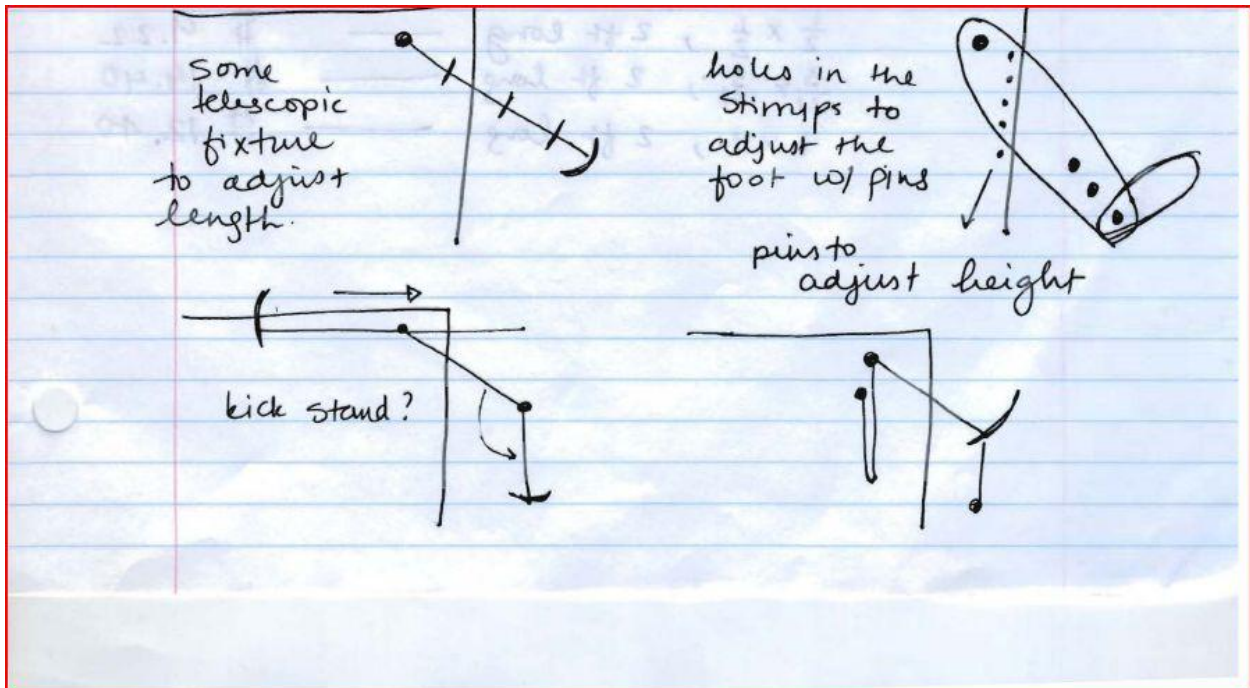 some
telescopic
fixture
to adjust
length.
holes in the
Stirrups to
adjust the
foot w/ pins
pins to
adjust height
kick stand?